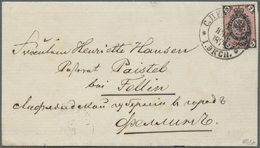 Fräulein Henriette Hansen
Pastorat Paistel
bei
Fellin
Лифляндской губерніи въ городѣ
Феллинъ.